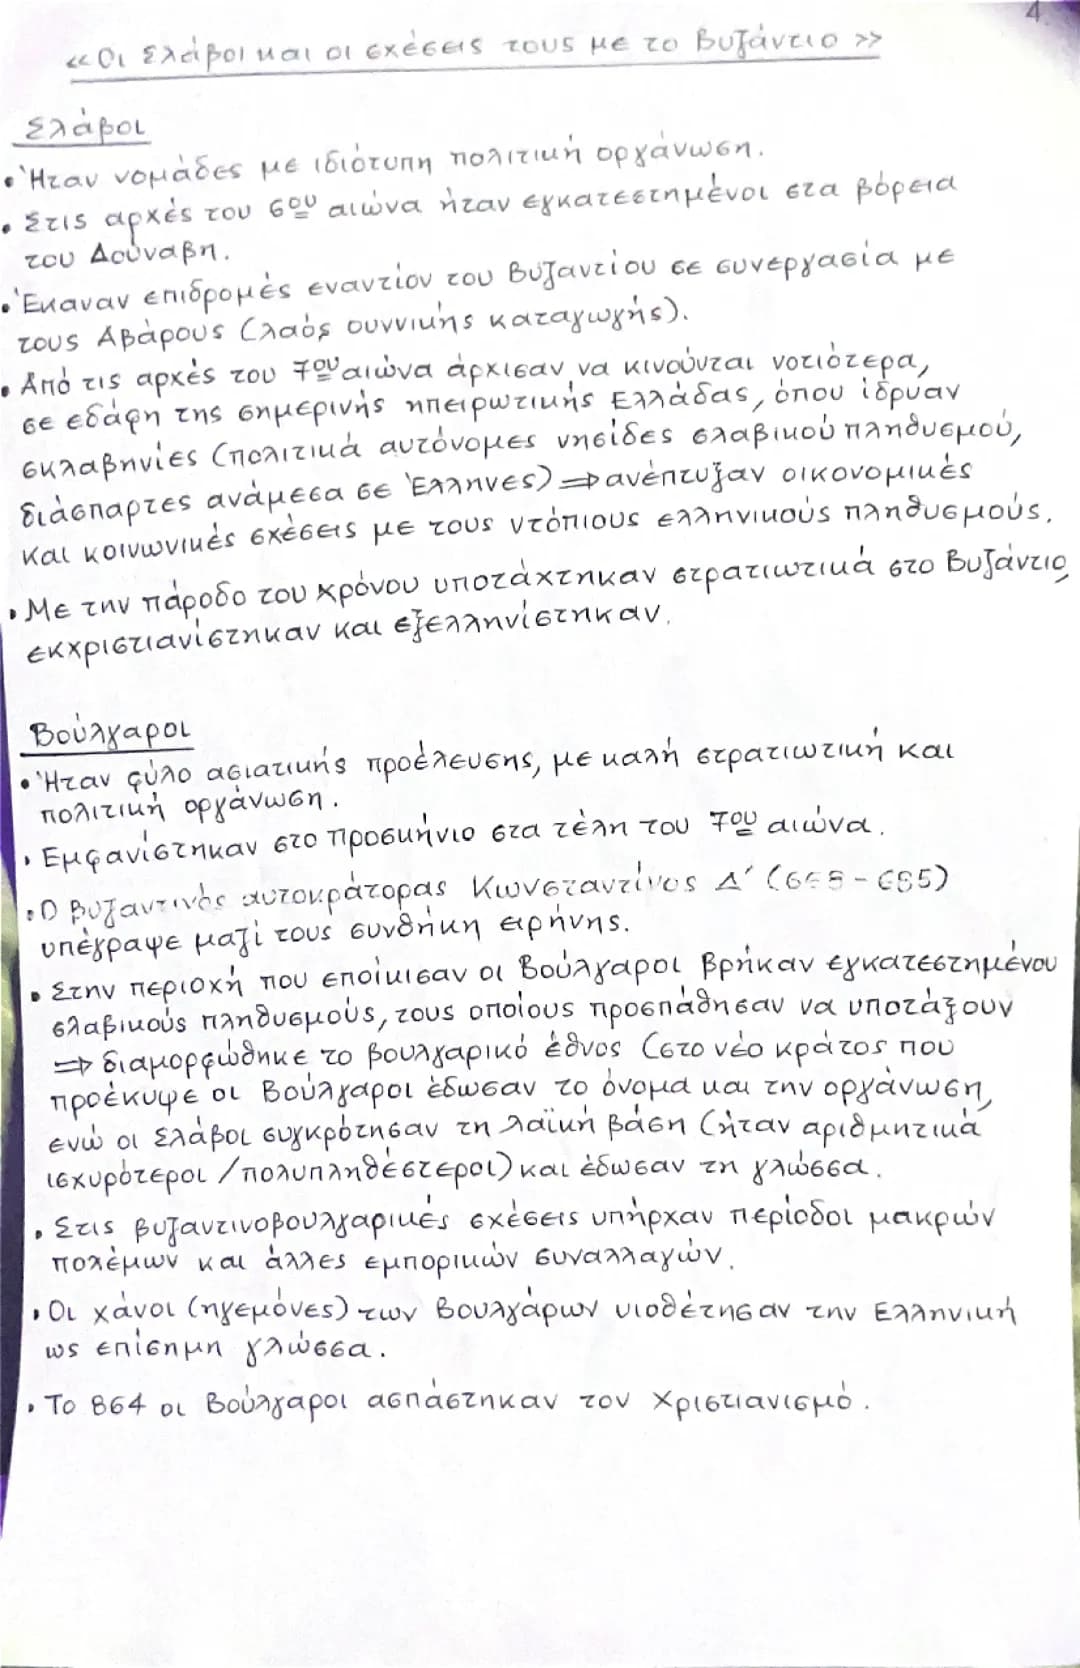 4
«Οι Σλάβοι και οι σχέσεις τους με το Βυζάντιο»
Σλάβοι
• Ήταν νομάδες με ιδιότυπη πολιτική οργάνωση.
• Στις αρχές του 6ου αιώνα ήταν εγκατεστημένοι στα βόρεια
του Δούναβη.
• Έκαναν επιδρομές εναντίον του Βυζαντίου σε συνεργασία με
τους Αβάρους (λαός ουννικής καταγωγής).
• Από τις αρχές του 7ου αιώνα άρχισαν να κινούνται νοτιότερα,
σε εδάφη της σημερινής ηπειρωτικής Ελλάδας, όπου ίδρυαν
σκλαβηνίες (πολιτικά αυτόνομες νησίδες σλαβικού πληθυσμού,
διάσπαρτες ανάμεσα σε Έλληνες) ⇒ ανέπτυξαν οικονομικές
και κοινωνικές σχέσεις με τους ντόπιους ελληνικούς πληθυσμούς.
• Με την πάροδο του χρόνου υποτάχτηκαν στρατιωτικά στο Βυζάντιο,
εκχριστιανίστηκαν και εξελληνίστηκαν.
Βούλγαροι
• Ήταν φύλο ασιατικής προέλευσης, με καλή στρατιωτική και
πολιτική οργάνωση.
• Εμφανίστηκαν στο προσκήνιο στα τέλη του 7ου αιώνα.
• Ο Βυζαντινός αυτοκράτορας Κωνσταντίνος Δ' (668-685)
υπέγραψε μαζί τους συνθήκη ειρήνης.
• Στην περιοχή που εποίκισαν οι Βούλγαροι βρήκαν εγκατεστημένου
σλαβικούς πληθυσμούς, τους οποίους προσπάθησαν να υποτάξουν
⇒ διαμορφώθηκε το βουλγαρικό έθνος (στο νέο κράτος που
προέκυψε οι Βούλγαροι έδωσαν το όνομα και την οργάνωση,
ενώ οι Σλάβοι συγκρότησαν τη λαϊκή βάση (ήταν αριθμητικά
ισχυρότεροι / πολυπληθέστεροι) και έδωσαν τη γλώσσα.
• Στις βυζαντινοβουλγαρικές σχέσεις υπήρχαν περίοδοι μακρών
πολέμων και άλλες εμπορικών συναλλαγών.
• Οι χάνοι (ηγεμόνες) των Βουλγάρων υιοθέτησαν την Ελληνική
ως επίσημη γλώσσα.
• Το 864 οι Βούλγαροι ασπάστηκαν τον Χριστιανισμό.